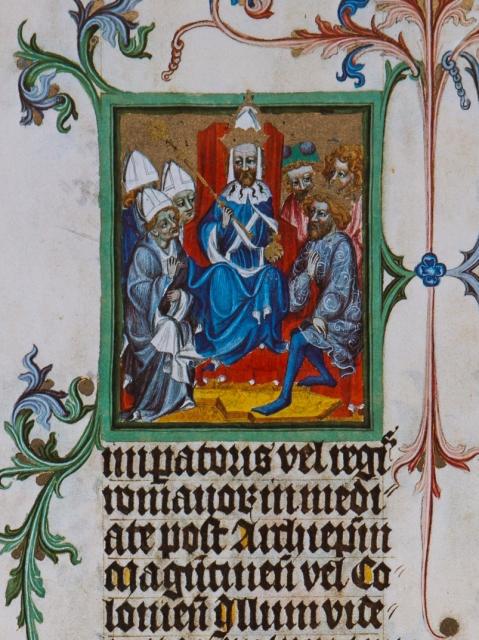 impatoris vel regis
romanorꝝ inmedi-
ate post Archiepm̄
Magūtineñ vel Co-
lonieñ Illum vide-